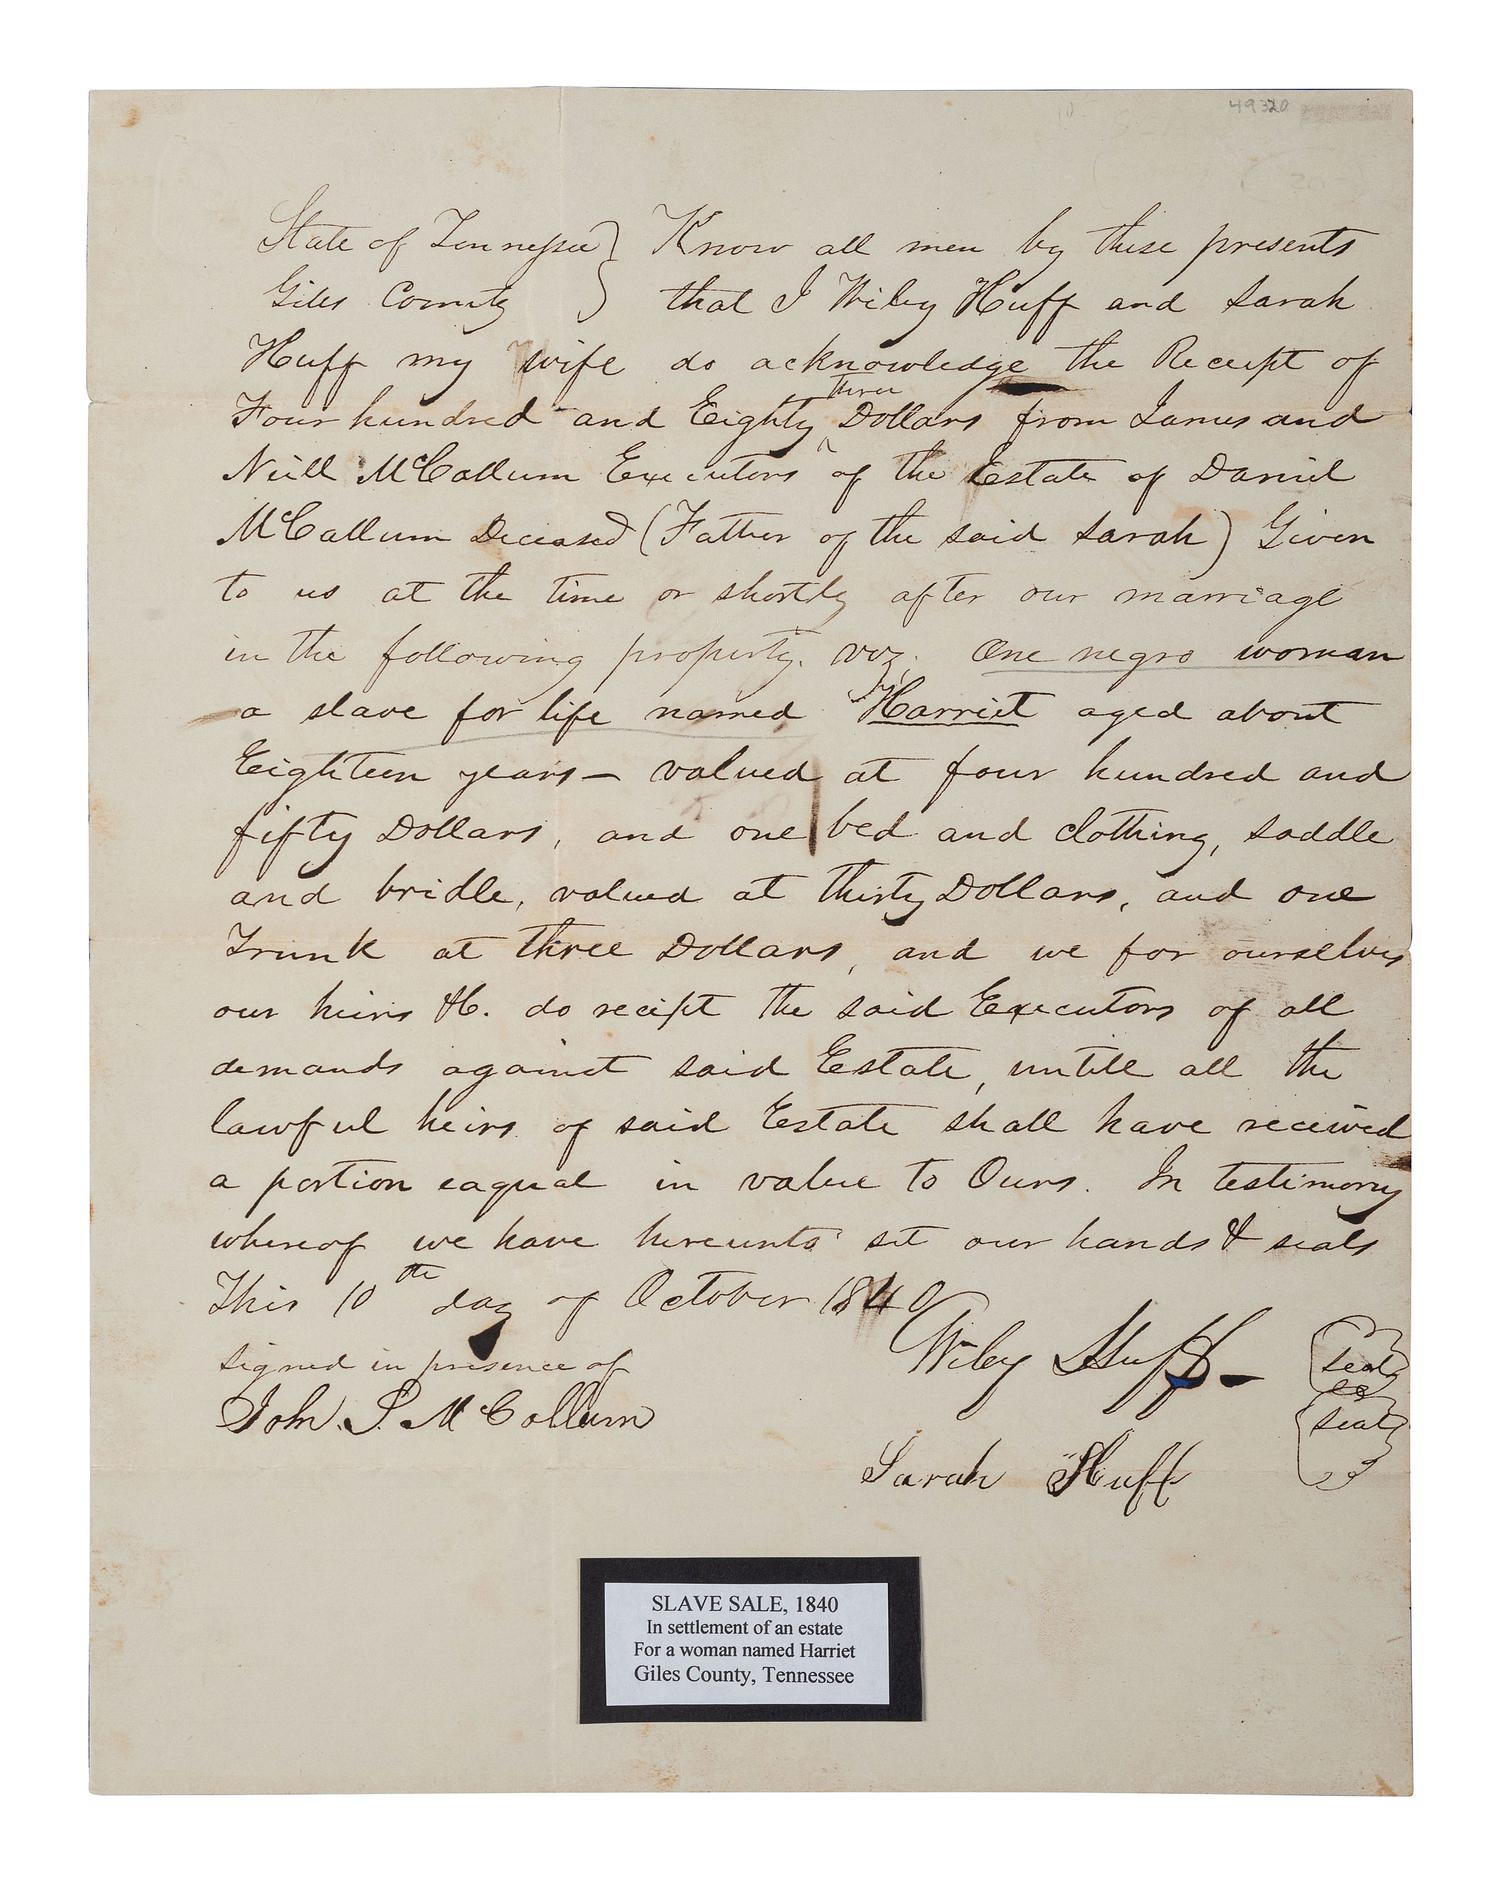 49320
State of Tennessee } Know all men by these presents
Giles County } that I Wiley Huff and Sarah
Huff my wife do acknowledge the Receipt of
Four hundred and Eighty three Dollars from James and
Neill McCallum Executors of the Estate of Daniel
McCallum Deceased (Father of the said Sarah) Given
to us at the time or shortly after our marriage
in the following property. viz. One negro woman
a slave for life named Harriet aged about
Eighteen years – valued at four hundred and
fifty Dollars, and one bed and clothing, saddle
and bridle, valued at thirty Dollars, and one
Trunk at three Dollars, and we for ourselves
our heirs &c. do receipt the said Executors of all
demands against said Estate, untill all the
lawful heirs of said Estate shall have received
a portion eaqual in value to Ours. In testimony
whereof we have hereunto set our hands & seals
This 10th day of October 1840
Signed in presence of
John. S. McCollum
Wiley Huff – seal
Sarah Huff seal
SLAVE SALE, 1840
In settlement of an estate
For a woman named Harriet
Giles County, Tennessee